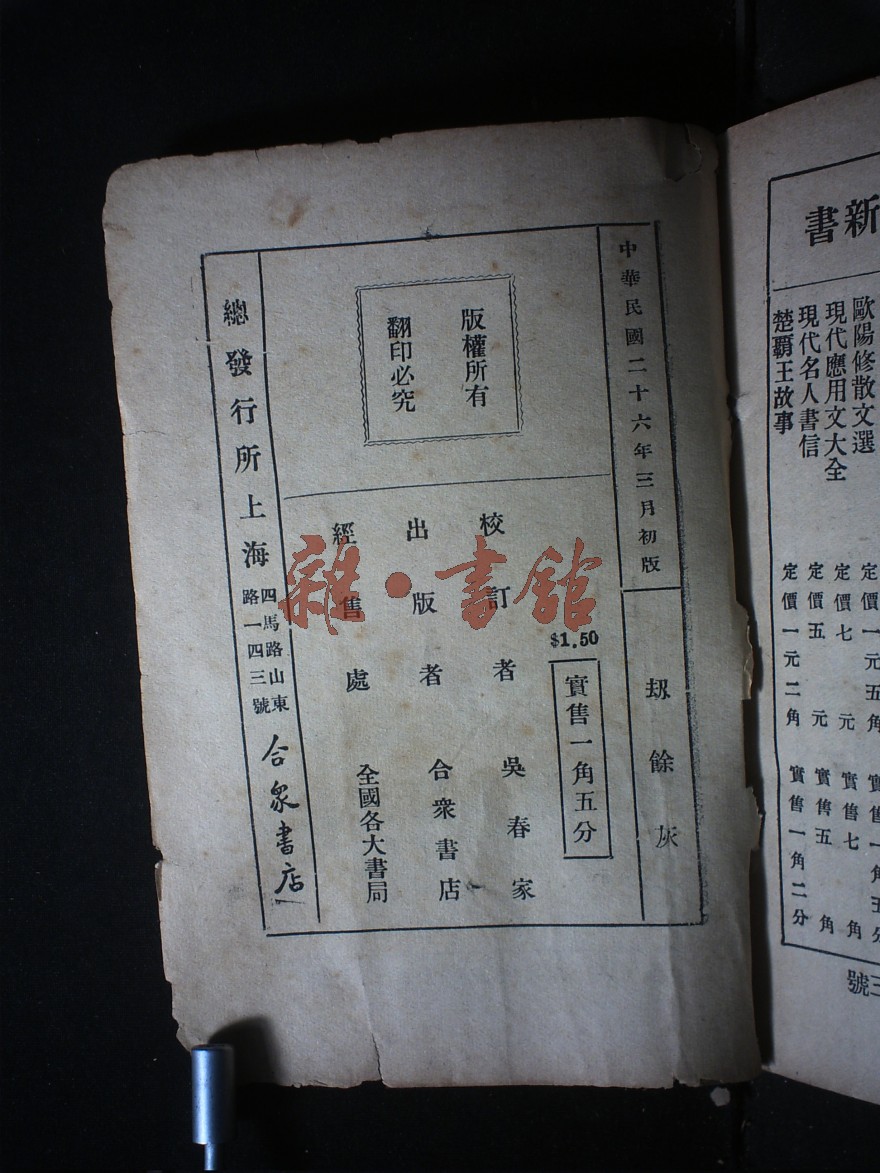 中華民國二十六年三月初版
刼餘灰
版權所有
翻印必究
$1.50
實售一角五分
校訂者 吳春家
出版者 合衆書店
經售處 全國各大書局
總發行所上海
四馬路山東
路一四三號
合衆書店
雜·書館
新書
歐陽修散文選 定價一元五角 實售一角五分
現代應用文大全 定價七元 實售七角
現代名人書信 定價五元 實售五角
楚覇王故事 定價一元二角 實售一角二分
三號